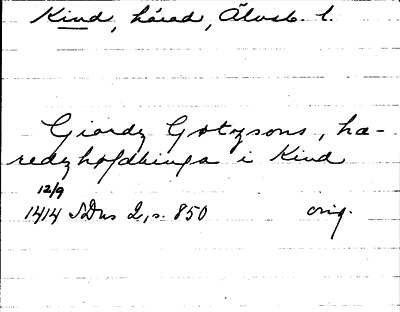 Kind, härad, Älvsb. l.
Giordz Gotzsons, hä-
redzhofdhinga i Kind
12/9
1414 SDns 2, s. 850 orig.